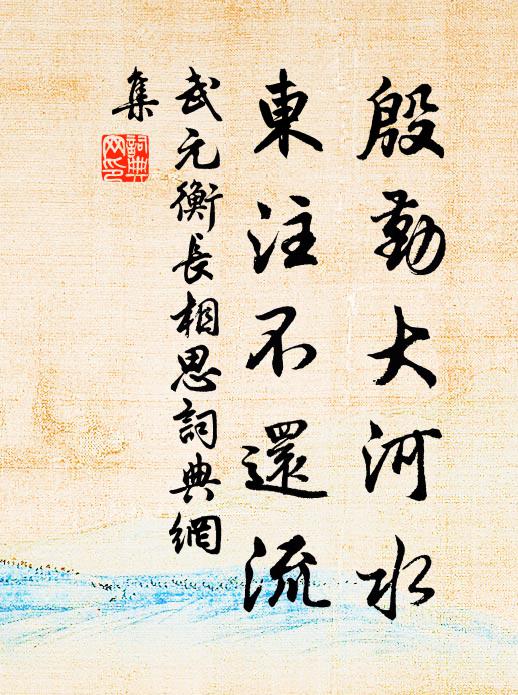 殷勤大河水
東注不還流
武元衡長相思詞典網
集
詞典
网印